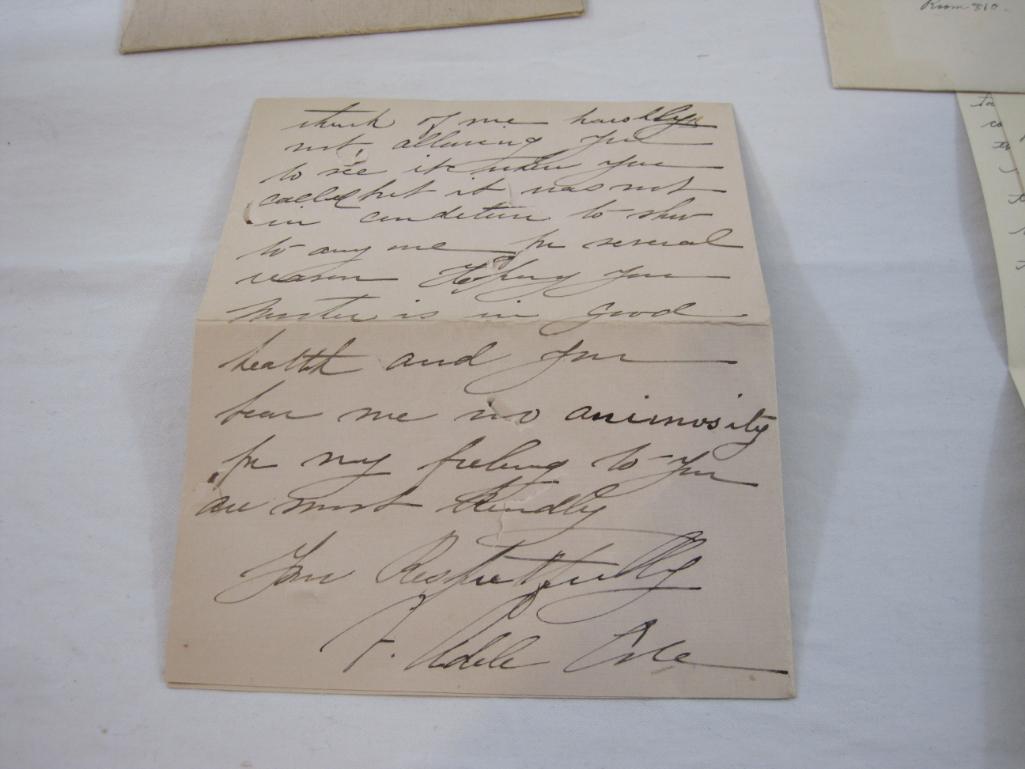 Room 310.
think of me harshly
not, allowing you
to see it when you
called but it was not
in condition to show
to any one for several
reason Hoping you
is in good
health and you
bear me no animosity
for my feeling to you
are most kindly
Your Respectfully
F. Adele Cole